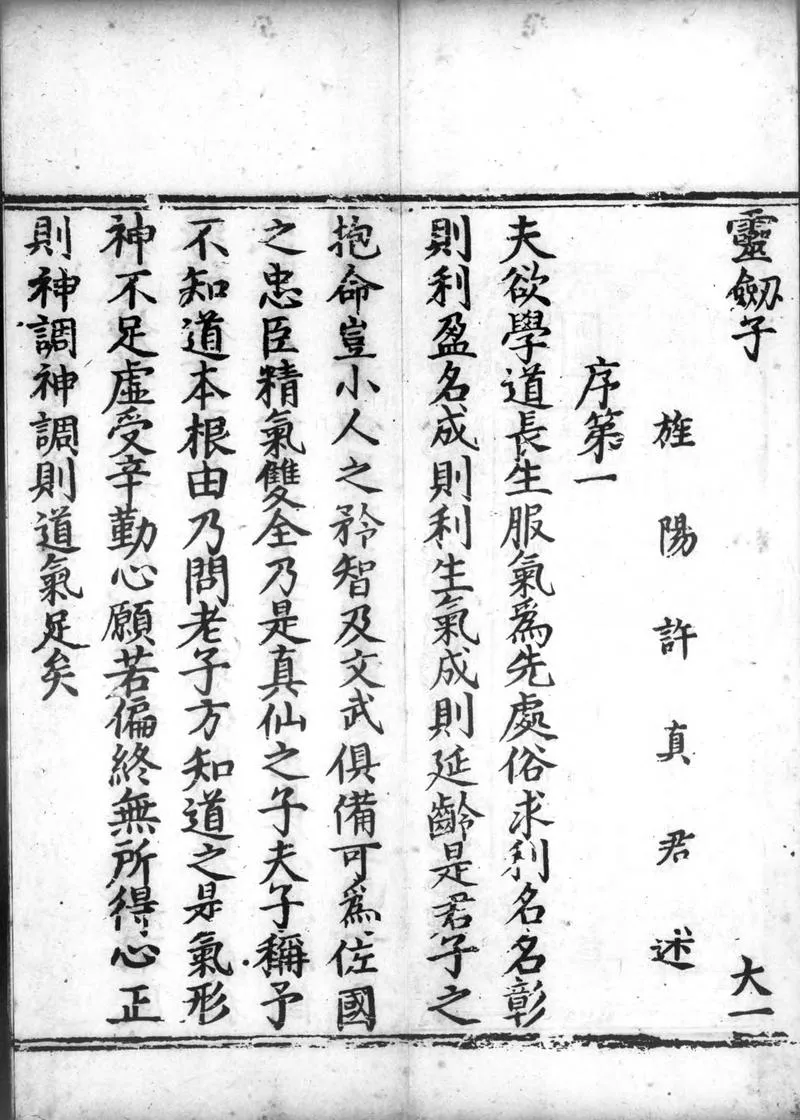 靈劔子 大一
旌陽許真君述
序第一
夫欲學道長生服氣爲先處俗求利名名彰
則利盈名成則利生氣成則延齡是君子之
抱命豈小人之矜智及文武俱備可爲佐國
之忠臣精氣雙全乃是真仙之子夫子稱予
不知道本根由乃問老子方知道之是氣形
神不足虛受辛勤心願若偏終無所得心正
則神調神調則道氣足矣